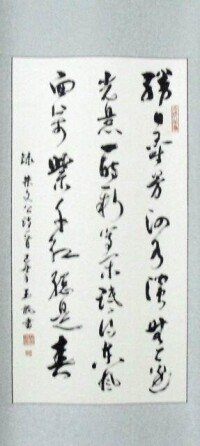 勝日尋芳泗水濱無邊
光景一時新等閒識得東風
面萬紫千紅總是春
朱文公詩 書